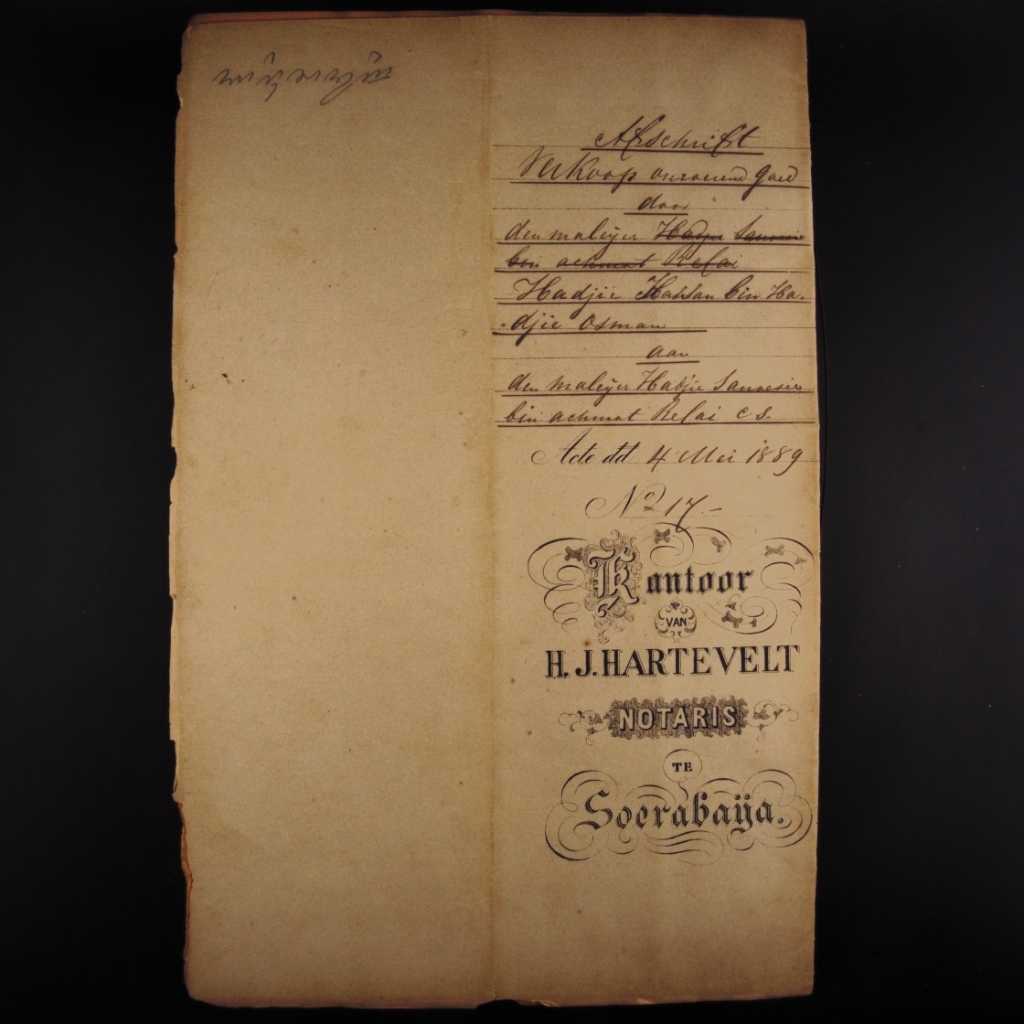 Afschrift
Verkoop onroerend goed
door
den maleijer Hadjie Sanoesie
bin achmat Refai
Hadjie Hassan bin Ha-
-djie Osman
aan
den maleijer Hadjie Sanoesie
bin achmat Refai c s.
Acte dd 4 Mei 1889
No 17.-
Kantoor
VAN
H. J. HARTEVELT
NOTARIS
TE
Soerabaija.